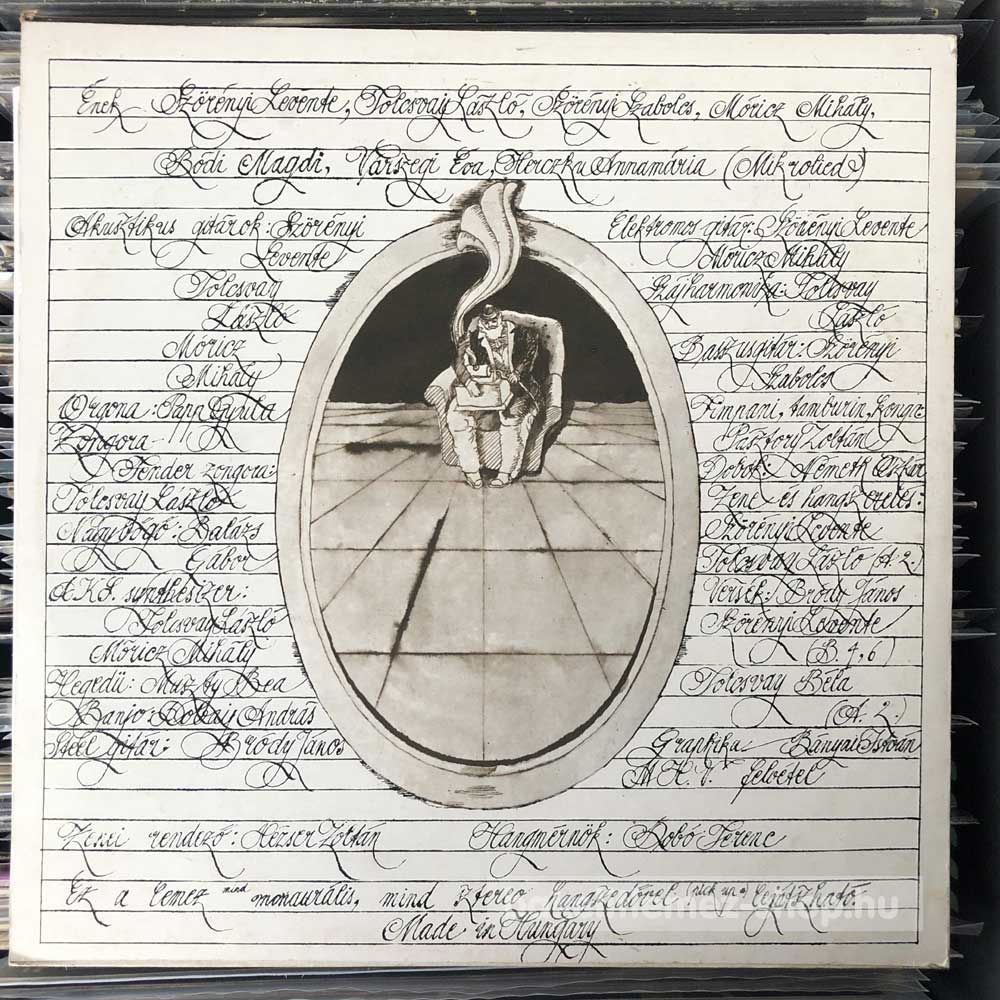 Ének Szörényi Levente, Tolcsvay László, Szörényi Szabolcs, Móricz Mihály,
Bódi Magdi, Várszegi Éva, Herczku Annamária (Mikrolied)
Akusztikus gitárok: Szörényi
Levente
Tolcsvay
László
Móricz
Mihály
Orgona: Papp Gyula
Zongora
Fender zongora:
Tolcsvay László
Nagybőgő: Balázs
Gábor
A.K.S. synthesizer:
Tolcsvay László
Móricz Mihály
Hegedü: Bea
Banjo: András
Steel gitár: Bródy János
Elektromos gitár: Szörényi Levente
Móricz Mihály
Szájharmonika: Tolcsvay
László
Basszusgitár: Szörényi
Szabolcs
Timpani, tamburin, konga:
Pásztory Zoltán
Dobok: Németh Oszkár
Zene és hangszerelés:
Szörényi Levente
Tolcsvay László (A. 2.)
Versek: Bródy János
Szörényi Levente
(B. 4, 6)
Tolcsvay Béla
(A. 2.)
Graphika Bányai István
M.H.V. felvétel
Zenei rendező: Hézser Zoltán Hangmérnök: Dobó Ferenc
Ez a lemez mind monaurális, mind sztereo hangszedővel (pick up) lejátszható.
Made in Hungary